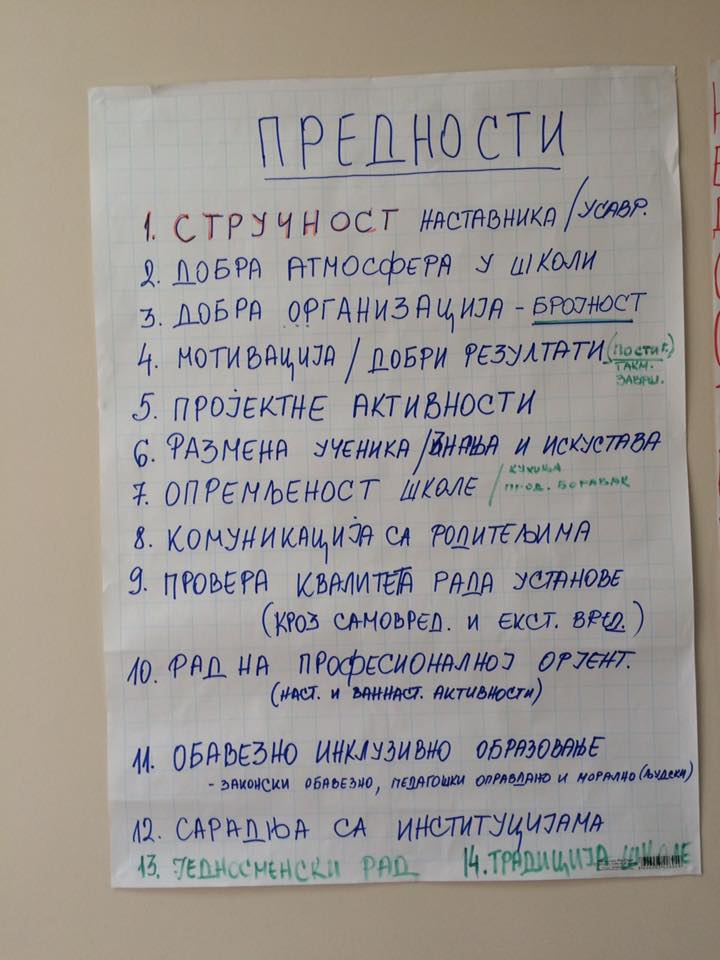 ПРЕДНОСТИ
1. СТРУЧНОСТ НАСТАВНИКА / УСАВР.
2. ДОБРА АТМОСФЕРА У ШКОЛИ
3. ДОБРА ОРГАНИЗАЦИЈА - БРОЈНОСТ
4. МОТИВАЦИЈА / ДОБРИ РЕЗУЛТАТИ (ПОСТИГ.)
ТАКМ.
ЗАВРШ.
5. ПРОЈЕКТНЕ АКТИВНОСТИ
6. РАЗМЕНА УЧЕНИКА / ЗНАЊА И ИСКУСТАВА
7. ОПРЕМЉЕНОСТ ШКОЛЕ / КУХИЊА
ПРОД. БОРАВАК
8. КОМУНИКАЦИЈА СА РОДИТЕЉИМА
9. ПРОВЕРА КВАЛИТЕТА РАДА УСТАНОВЕ
(КРОЗ САМОВРЕД. И ЕКСТ. ВРЕД.)
10. РАД НА ПРОФЕСИОНАЛНОЈ ОРЈЕНТ.
(НАСТ. И ВАННАСТ. АКТИВНОСТИ)
11. ОБАВЕЗНО ИНКЛУЗИВНО ОБРАЗОВАЊЕ
- ЗАКОНСКИ ОБАВЕЗНО, ПЕДАГОШКИ ОПРАВДАНО И МОРАЛНО (ЉУДСКИ)
12. САРАДЊА СА ИНСТИТУЦИЈАМА
13. ЈЕДНОСМЕНСКИ РАД 14. ТРАДИЦИЈА ШКОЛЕ